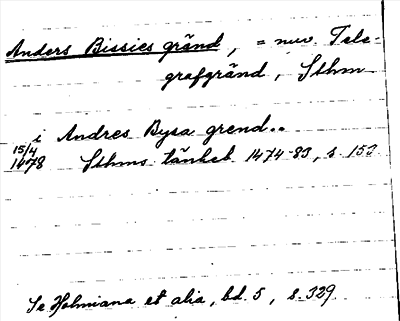 Anders Bissies gränd, = nuv. Tele-
grafgränd, Sthm
i Andres Bysa grend..
15/4
1478 Sthms tänkeb. 1474-83, s. 153
Se Holmiana et alia, bd. 5, s. 329